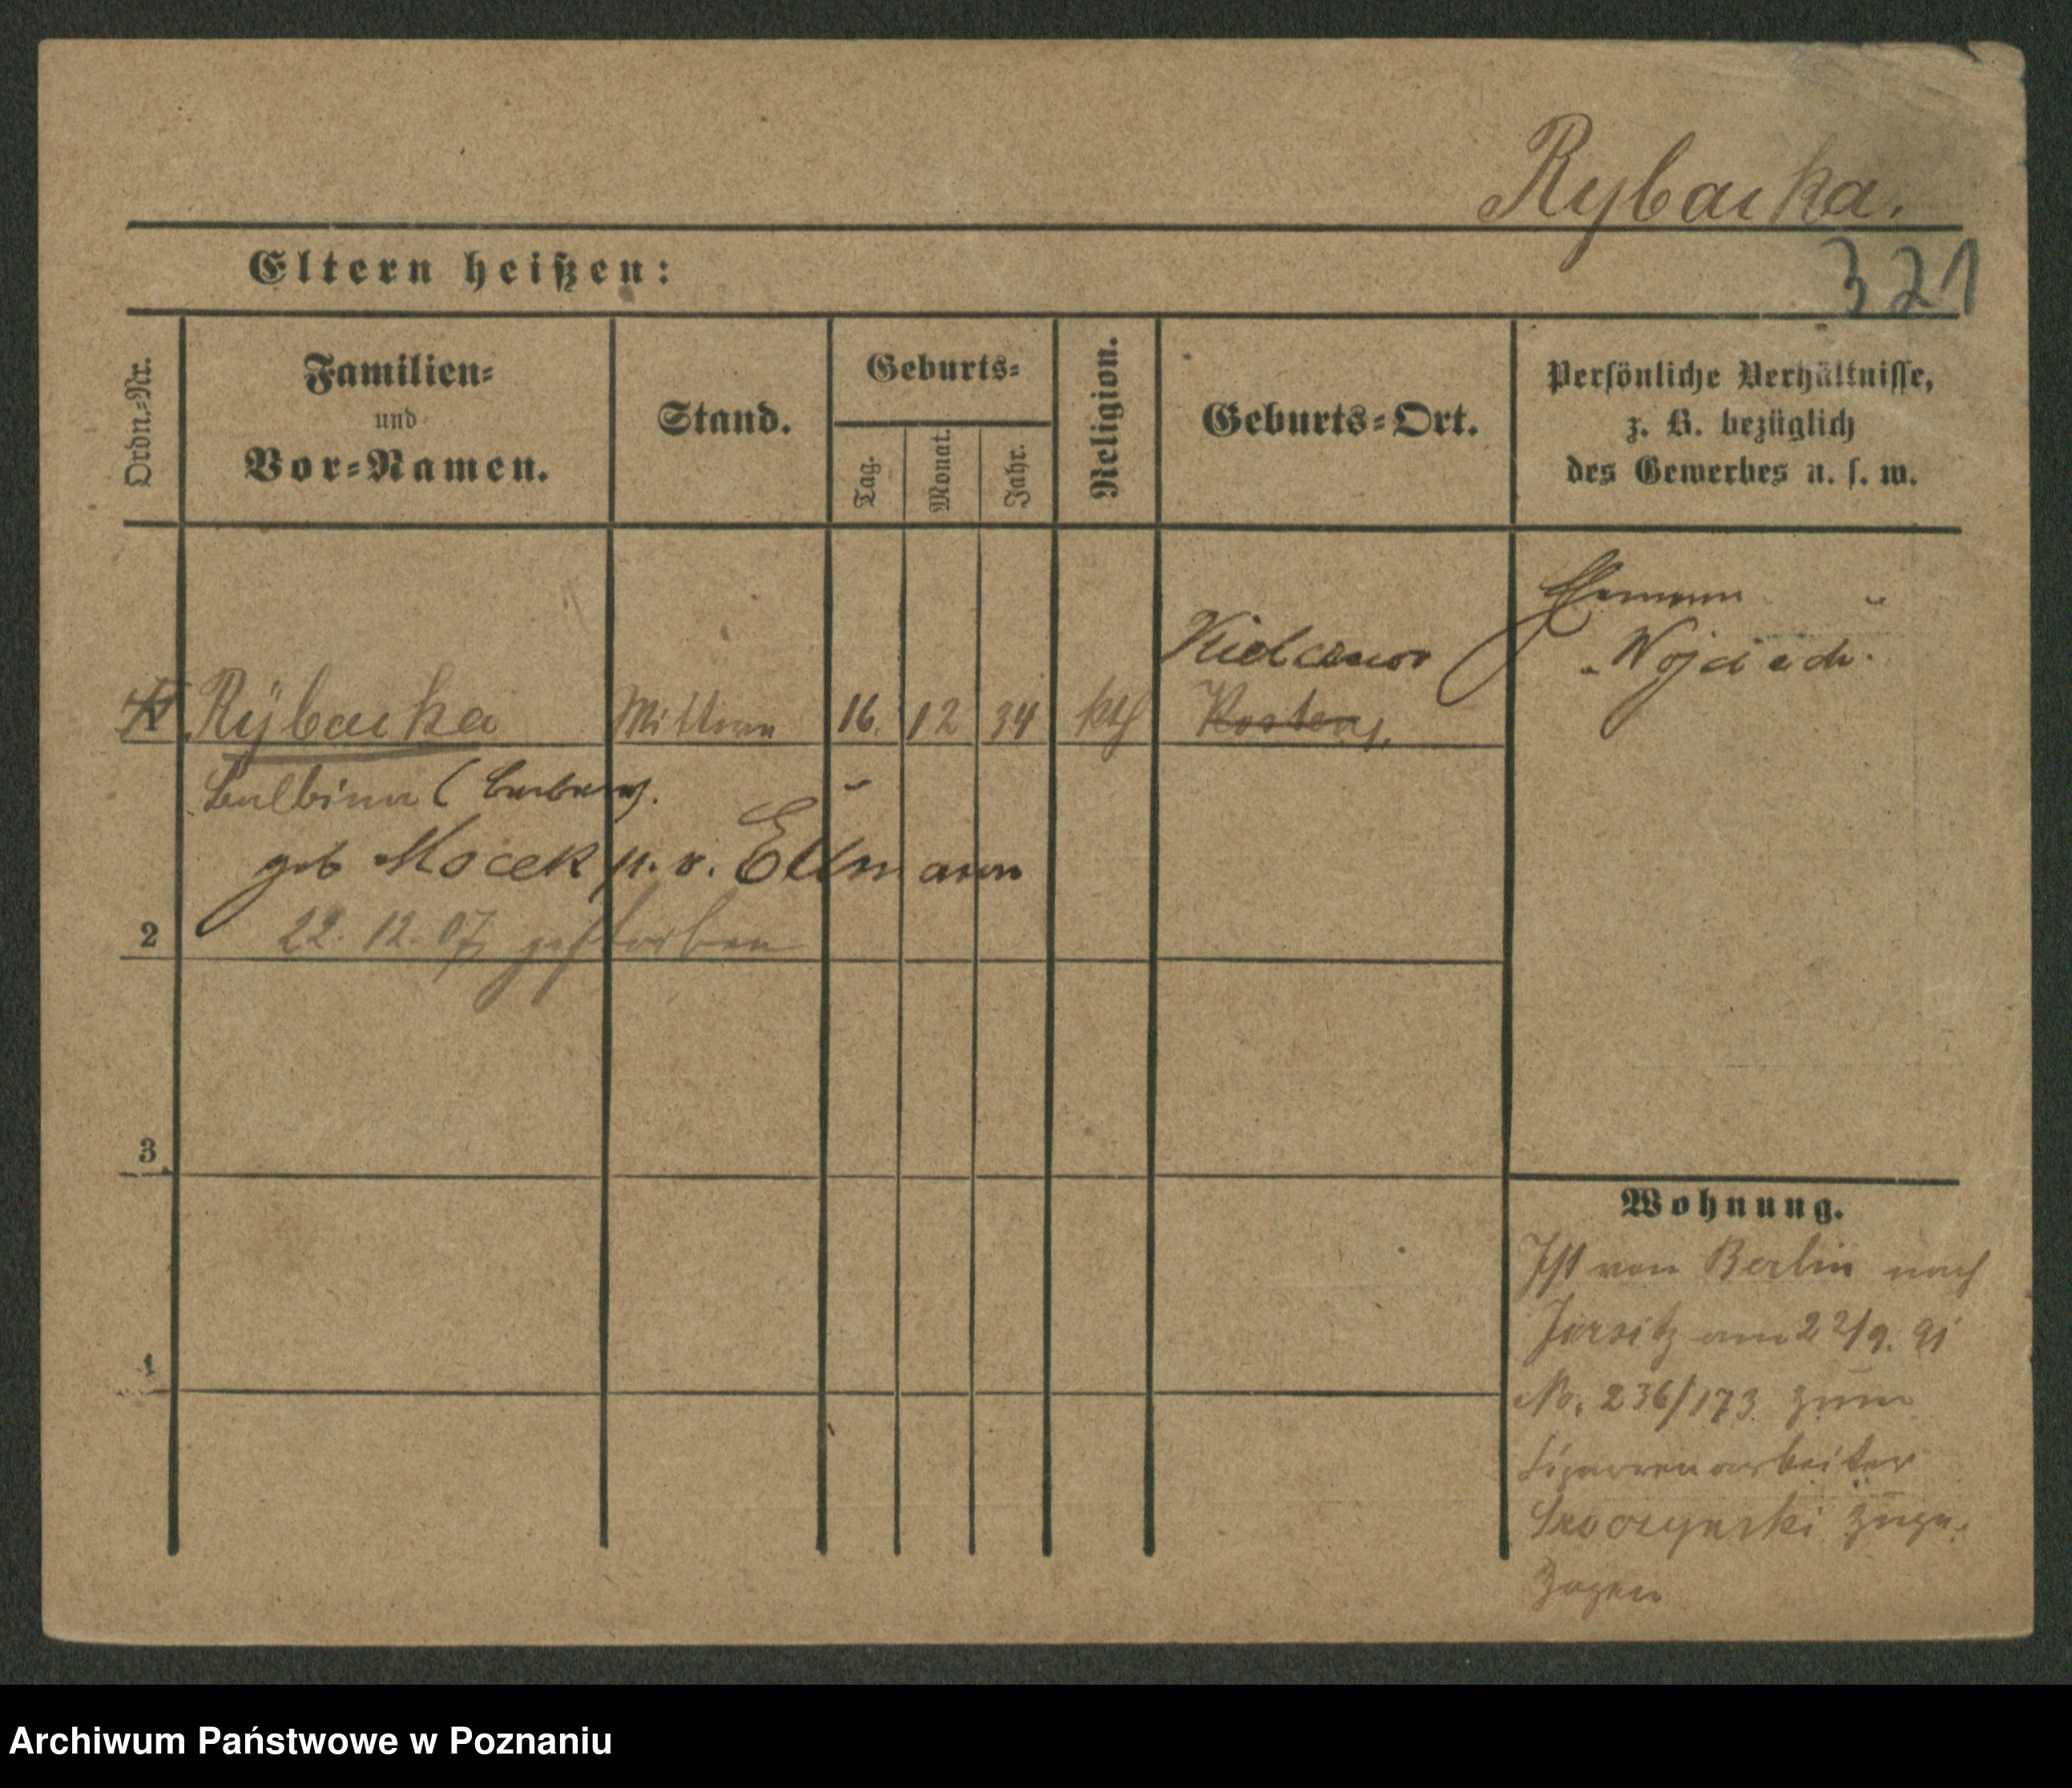 Rybacka.
Eltern heißen:
321
Ordn.-Nr.
Familien-
und
Vor-Namen.
Stand.
Geburts-
Tag.
Monat.
Jahr.
Religion.
Geburts-Ort.
Persönliche Verhältnisse,
z. B. bezüglich
des Gewerbes u. s. w.
Ehemann
Wojciech.
Rybacka
Wittwe
16. 12 34
kth
Kosten
Balbina (
geb Mocek p. v. Ellmann
2
22. 12. 07 gestorben
3
4
Wohnung.
Ist von Berlin nach
Jersitz am 22/9. 91
No. 236/173 zum
Cigarrenarbeiter
Sroczynski zuge-
zogen
Archiwum Państwowe w Poznaniu